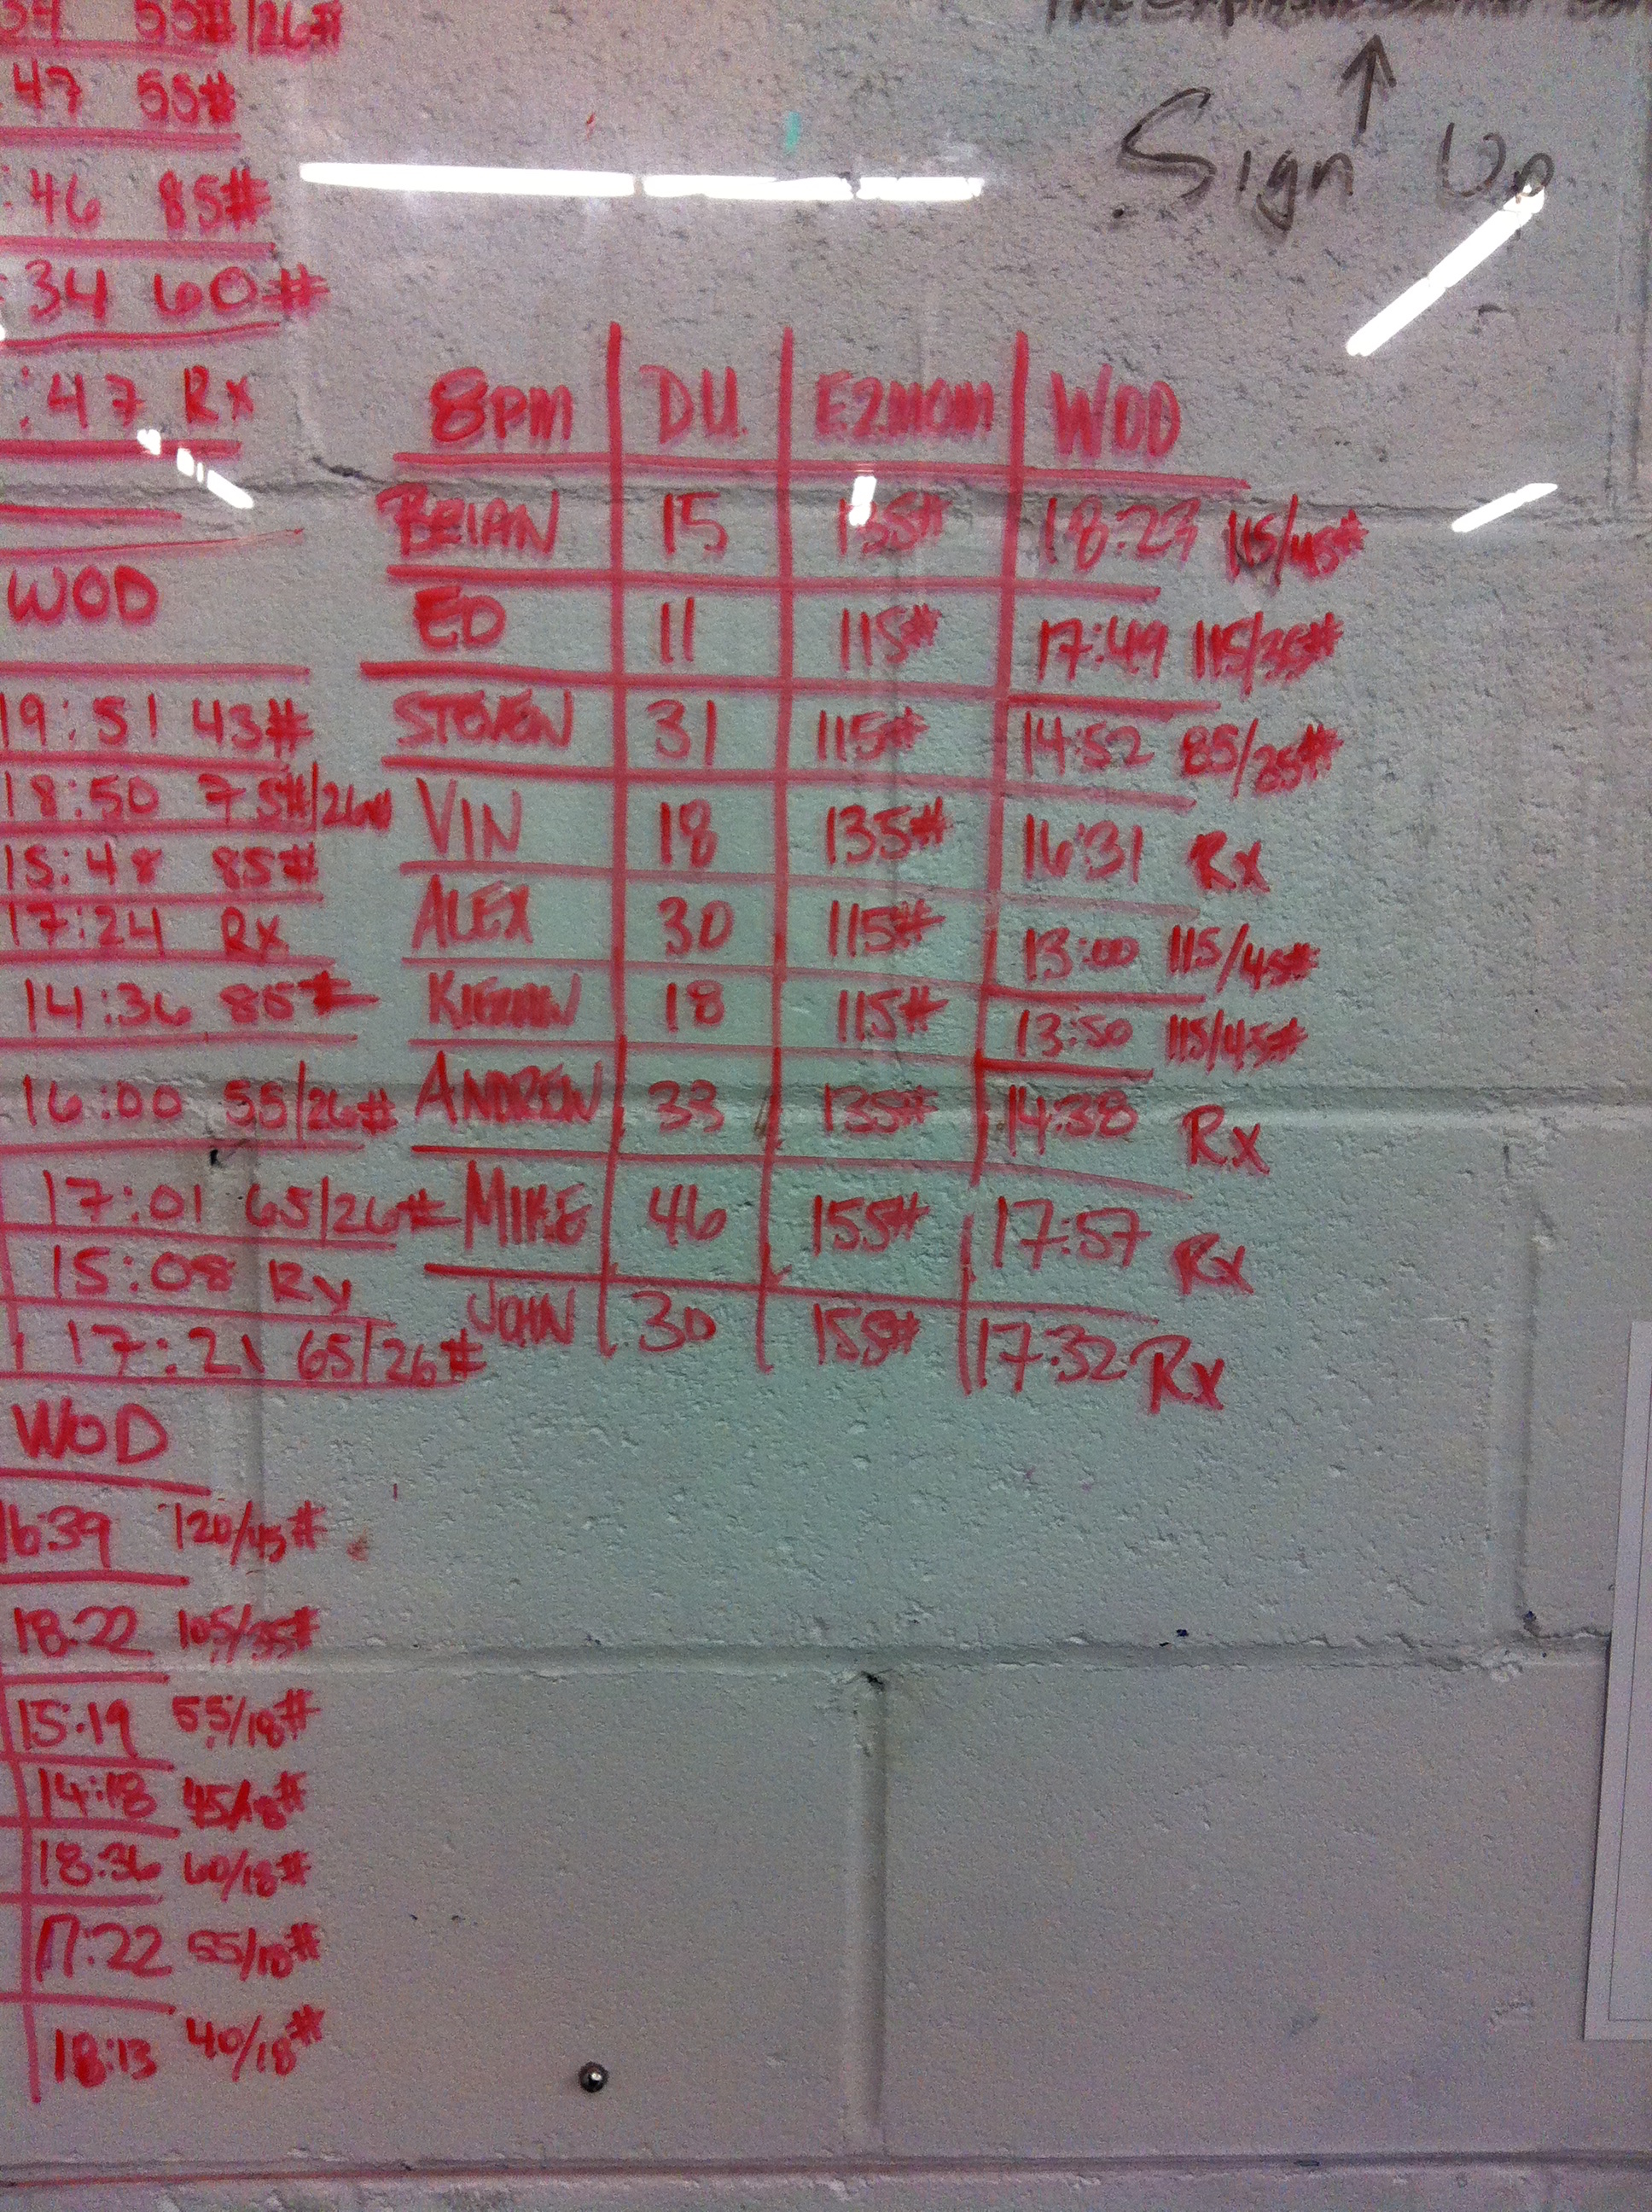 Sign Up
54 55#/26#
47 55#
:46 85#
:34 60#
:47 Rx
WOD
19:51 43#
18:50 75#/26#
15:48 85#
17:24 Rx
14:36 85#
16:00 55/26#
17:01 65/26#
15:08 Rx
17:21 65/26#
WOD
16:39 120/45#
18:22 105/35#
15:19 55/18#
14:18 45/18#
18:36 60/18#
17:22 55/18#
18:13 40/18#
8PM DU E2MOM WOD
BRIAN 15 135# 18:27 115/45#
ED 11 115# 17:49 115/35#
STEVEN 31 115# 14:52 85/25#
VIN 18 135# 16:31 Rx
ALEX 30 115# 13:00 115/45#
KIERAN 18 115# 13:50 115/45#
ANDREW 33 135# 14:38 Rx
MIKE 46 155# 17:57 Rx
JOHN 30 155# 17:32 Rx